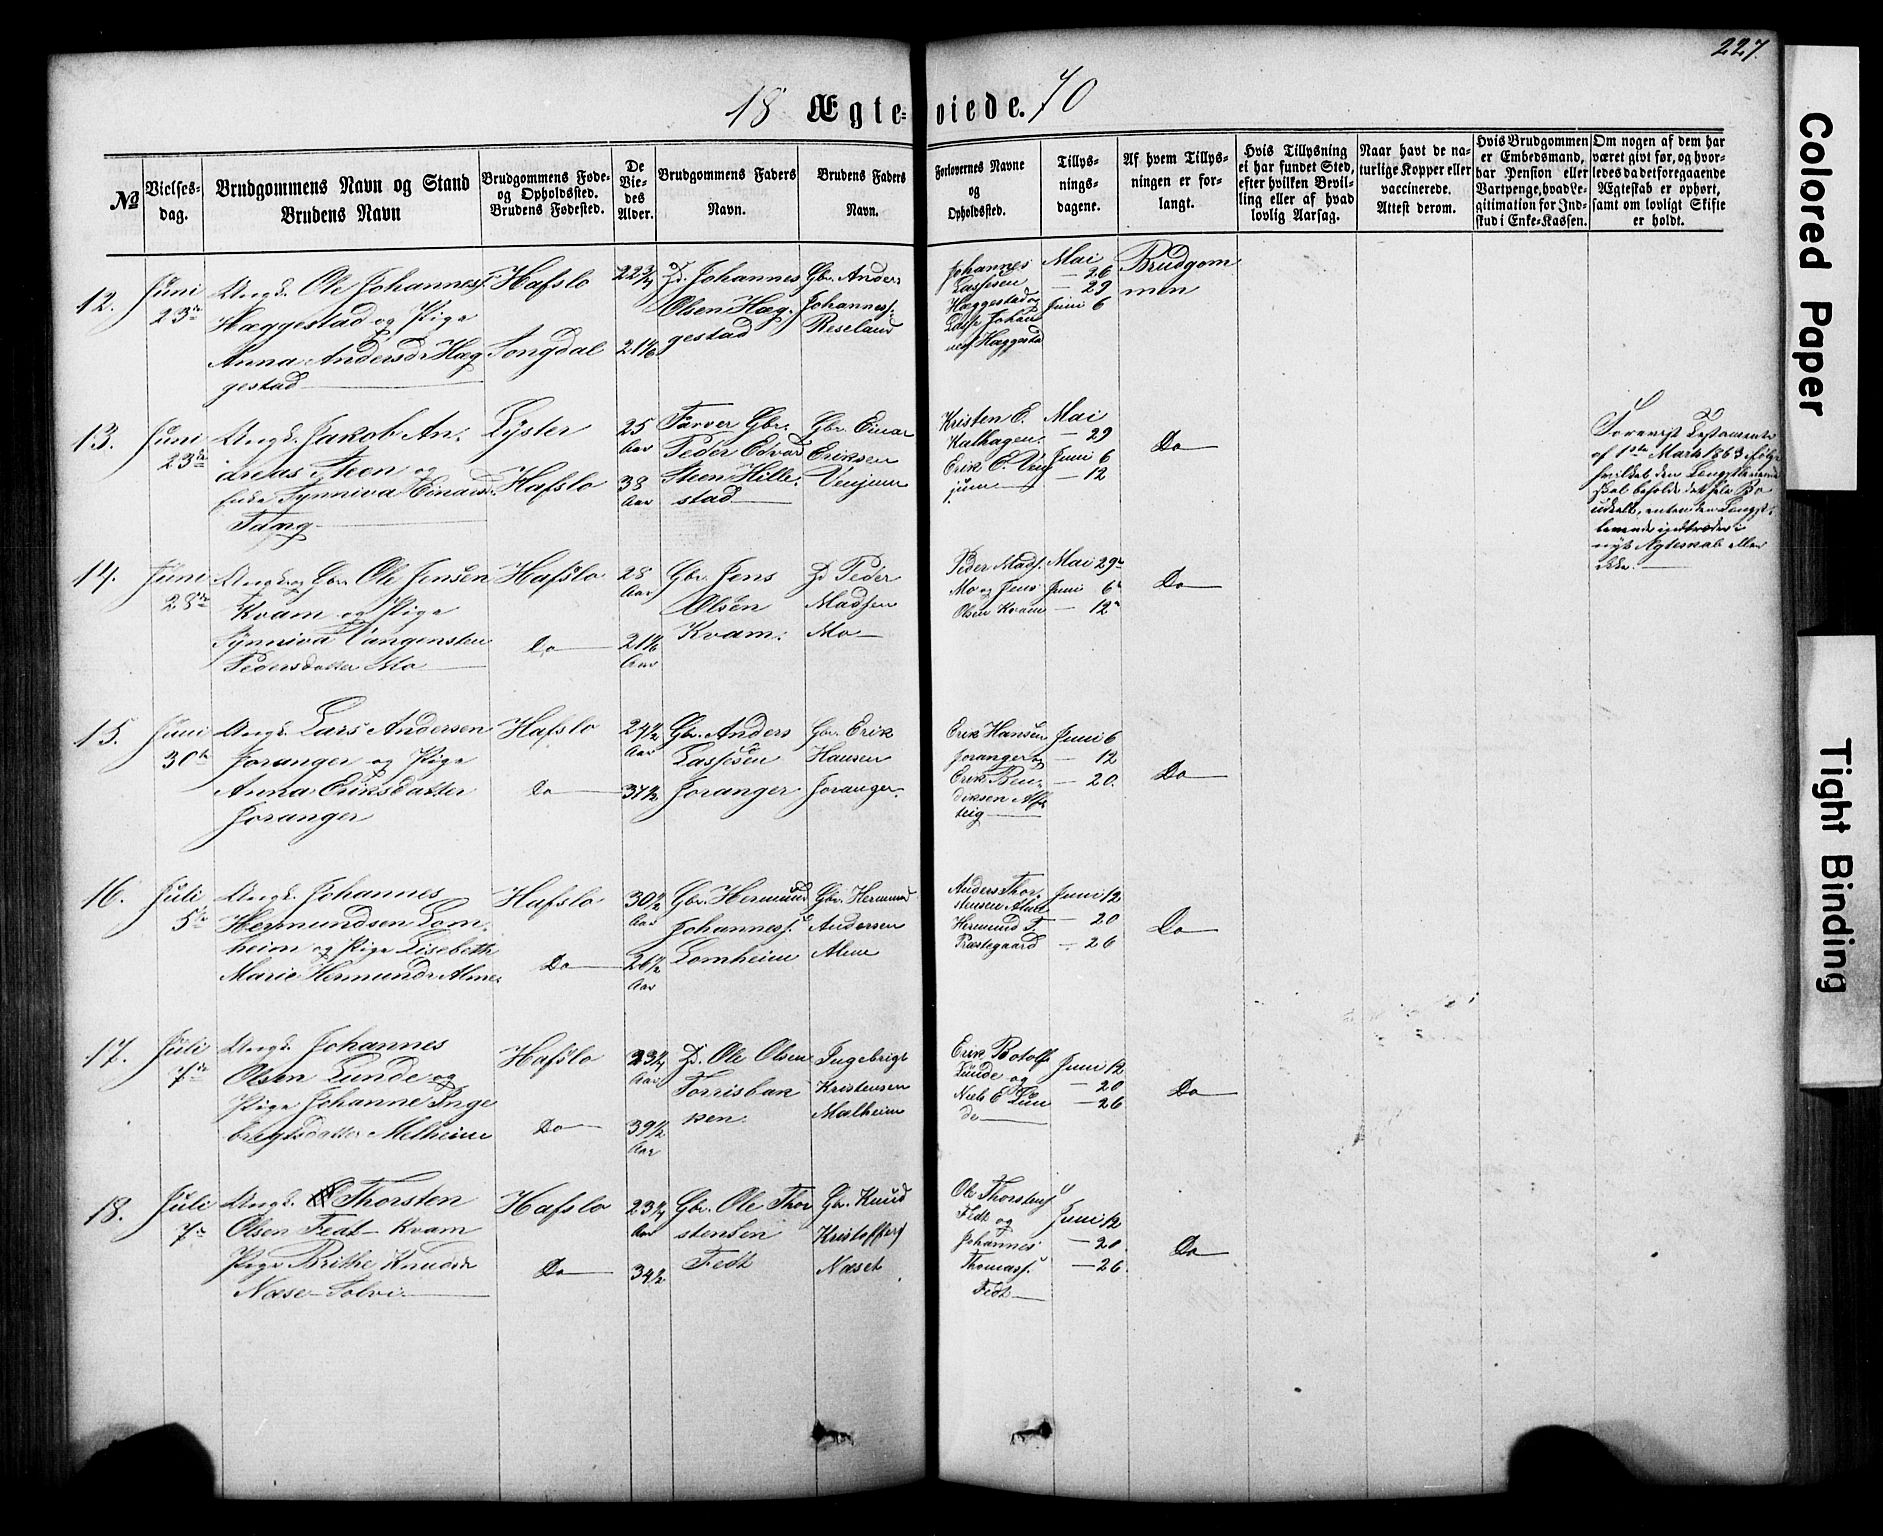 227.
18 Ægteviede. 70
No
Vielsesdag.
Brudgommens Navn og Stand
Brudens Navn
Brudgommens Føde- og Opholdssted.
Brudens Fødested.
De Viedes Alder.
Brudgommens Faders Navn.
Brudens Faders Navn.
Forlovernes Navne og Opholdssted.
Tillysningsdagene.
Af hvem Tillysningen er forlangt.
Hvis Tillysning ei har fundet Sted, efter hvilken Bevilling eller af hvad lovlig Aarsag.
Naar havt de naturlige Kopper eller vaccinerede. Attest derom.
Hvis Brudgommen er Embedsmand, har Pension eller Vartpenge, hvad Legitimation for Indskud i Enke-Kassen.
Om nogen af dem har været givt før, og hvorledes da det foregaaende Ægteskab er ophørt, samt om lovligt Skifte er holdt.
12.
Juni 23de
Ungk. Ole Johannes.
Haggestad og Pige
Anna Andersdr Hæg
gestad
Hafslo
Songdal
22 3/4
21 1/6
Johannes
Olsen Hæg-
gestad
Gbr. Anders
Johanness.
Reseland
Johannes
Lassesen
Hæggestad og
Lasse Johan
ness Hæggestad
Mai
— 26
— 29
Juni 6
Brudgom
men
13.
Juni 23de
Ungk. Jakob An-
dreas Steen og
Enke Synniva Einarsd.
Tang
Lyster
Hafslo
25 Aar
38 Aar
Farver Gbr.
Peder Edvard
Steen Hille-
stad
Gbr. Einar
Eriksen
Venjum
Kristen E.
Kalhagen.
Erik E. Ven
jum
Mai
— 29
Juni 6
— 12
Do
Forevist Testamente
af 1ste Marts 1863 ifølge
hvilket den Længstlevende
skal beholde det hele Bo
udeelt, enten den Længst-
levende indtræder i
nyt Ægteskab eller
ikke.
14.
Juni 28de
Ungk og Gbr. Ole Jensen
Kvam og Pige
Synniva Vangensten
Pedersdatter Mo
Hafslo
Do
28 Aar
21 1/6 Aar
Gbr. Jens
Olsen
Kvam.
Peder
Madsen
Mo
Peder Mads.
Mo og Jens
Olsen Kvam
Mai 29
Juni 6
— 12
Do
15.
Juni 30te
Ungk. Lars Andersen
Joranger og Pige
Anna Eriksdatter
Joranger
Hafslo
Do
24 1/2 Aar
37 1/2
Gbr. Anders
Lassesen
Joranger
Gbr. Erik
Hansen
Joranger.
Erik Hansen
Joranger og
Erik Ben-
diksen
teig
Juni 6
— 12
— 20.
Do
16.
Juli 5te
Ungk. Johannes
Hermundsen Lom-
heim og Pige Lisebeth
Marie Hermundr Alme
Hafslo
Do
30 1/2 Aar
26 1/2 Aar
Gbr. Hermund
Johanness.
Lomheim
Gbr. Hermund
Andersen
Alme
Anders Thor-
stensen Alme
Hermund T.
Præstegaard
Juni 12
— 20
— 26
Do
17.
Juli 7de
Ungk. Johannes
Olsen Lunde og
Pige Johanne Inge
brigtsdatter Melheim
Hafslo
Do
23 1/4 Aar
39 1/2 Aar
Ole Olsen
Torrisbak
ken.
Ingebrigt
Kristensen
Malheim
Erik Botolfs
Lunde og
Niels E Lun
de
Juni 12
— 20
— 26
Do
18.
Juli 7de
Ungk. Thorsten
Olsen Fedt - Kvam
Pige Brithe Knudsdr
Næse - Solvi
Hafslo
Do
23 1/4 Aar
34 1/2
Gbr. Ole Thor
stensen
Fedt
Gbr. Knud
Kristoffers
Næset
Ole Thorstens.
Fedt og
Johannes
Thomass.
Fedt
Juni 12
— 20.
— 26.
Do
Colored Paper
Tight Binding